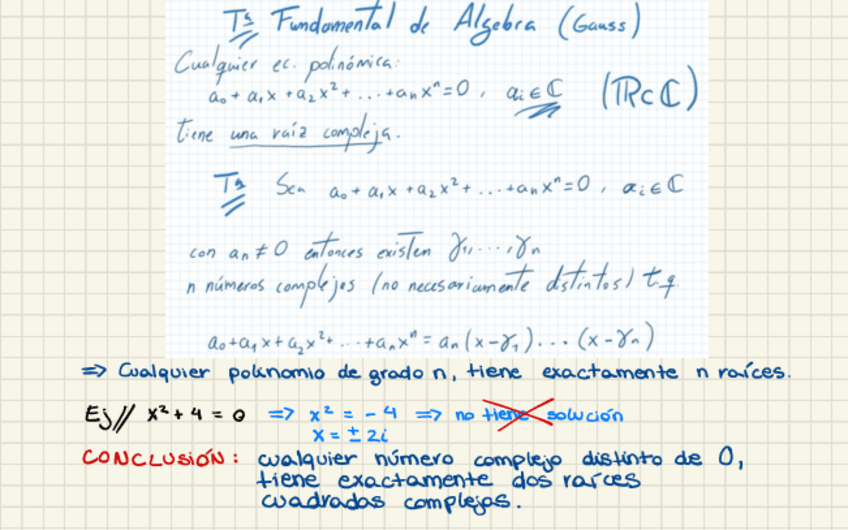 Tª Fundamental de Algebra (Gauss)
Cualquier ec. polinómica:
a₀ + a₁x + a₂x² + ... + aₙxⁿ = 0, aᵢ ∈ ℂ (ℝ ⊂ ℂ)
tiene una raíz compleja.
Tª Sea a₀ + a₁x + a₂x² + ... + aₙxⁿ = 0, aᵢ ∈ ℂ
con aₙ ≠ 0 entonces existen γ₁, ..., γₙ
n números complejos (no necesariamente dstintos) t.q.
a₀ + a₁x + a₂x² + ... + aₙxⁿ = aₙ(x-γ₁)...(x-γₙ)
=> Cualquier polinomio de grado n, tiene exactamente n raíces.
Ej// x² + 4 = 0 => x² = -4 => no tiene solución
x = ± 2i
CONCLUSIÓN: cualquier número complejo distinto de 0,
tiene exactamente dos raíces
cuadradas complejas.